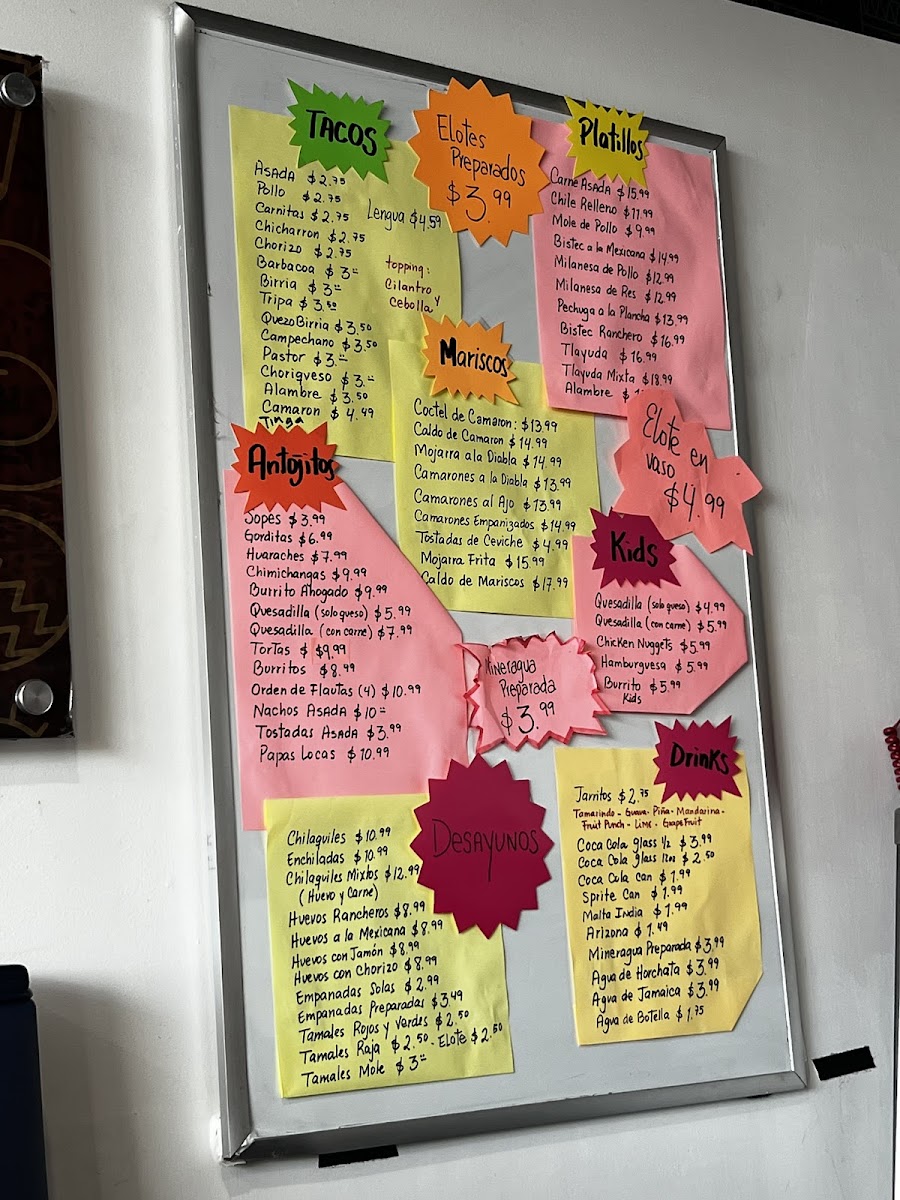 TACOS
ASADA $2.75
Pollo $2.75
Carnitas $2.75
Chicharron $2.75
Chorizo $2.75
Barbacoa $3=
Birria $3=
Tripa $3.50
QuezoBirria $3.50
Campechano $3.50
Pastor $3.=
Choriqueso $3.=
Alambre $3.50
Camaron $4.99
Tinga
Lengua $4.59
topping:
Cilantro y
Cebolla
Elotes
Preparados
$3.99
Platillos
Carne ASADA $15.99
Chile Relleno $11.99
Mole de Pollo $9.99
Bistec a la Mexicana $14.99
Milanesa de Pollo $12.99
Milanesa de Res $12.99
Pechuga a la Plancha $13.99
Bistec Ranchero $16.99
Tlayuda $16.99
Tlayuda Mixta $18.99
Alambre
Mariscos
Coctel de Camaron: $13.99
Caldo de Camaron $14.99
Mojarra a la Diabla $14.99
Camarones a la Diabla $13.99
Camarones al Ajo $13.99
Camarones Empanizados $14.99
Tostadas de Ceviche $4.99
Mojarra Frita $15.99
Caldo de Mariscos $17.99
Elote en
vaso
$4.99
Antojitos
Sopes $3.99
Gorditas $6.99
Huaraches $7.99
Chimichangas $9.99
Burrito Ahogado $9.99
Quesadilla (solo queso) $5.99
Quesadilla (con carne) $7.99
Tortas $ $9.99
Burritos $8.99
Orden de Flautas (4) $10.99
Nachos ASADA $10=
Tostadas ASADA $3.99
Papas Locas $10.99
Kids
Quesadilla (solo queso) $4.99
Quesadilla (con carne) $5.99
Chicken Nuggets $5.99
Hamburguesa $5.99
Burrito $5.99
Kids
Mineragua
Preparada
$3.99
DESAYUNOS
Chilaquiles $10.99
Enchiladas $10.99
Chilaquiles Mixtos $12.99
(Huevo y Carne)
Huevos Rancheros $8.99
Huevos a la Mexicana $8.99
Huevos con Jamón $8.99
Huevos con Chorizo $8.99
Empanadas Solas $2.99
Empanadas Preparadas $3.49
Tamales Rojos y Verdes $2.50
Tamales Raja $2.50 - Elote $2.50
Tamales Mole $3=
Drinks
Jarritos $2.75
Tamarindo - Guava - Piña - Mandarina -
Fruit Punch - Lime - GrapeFruit
Coca Cola glass 1/2 $3.99
Coca Cola glass 12oz $2.50
Coca Cola Can $1.99
Sprite Can $1.99
Malta India $1.99
Arizona $1.49
Mineragua Preparada $3.99
Agua de Horchata $3.99
Agua de Jamaica $3.99
Agua de Botella $1.75